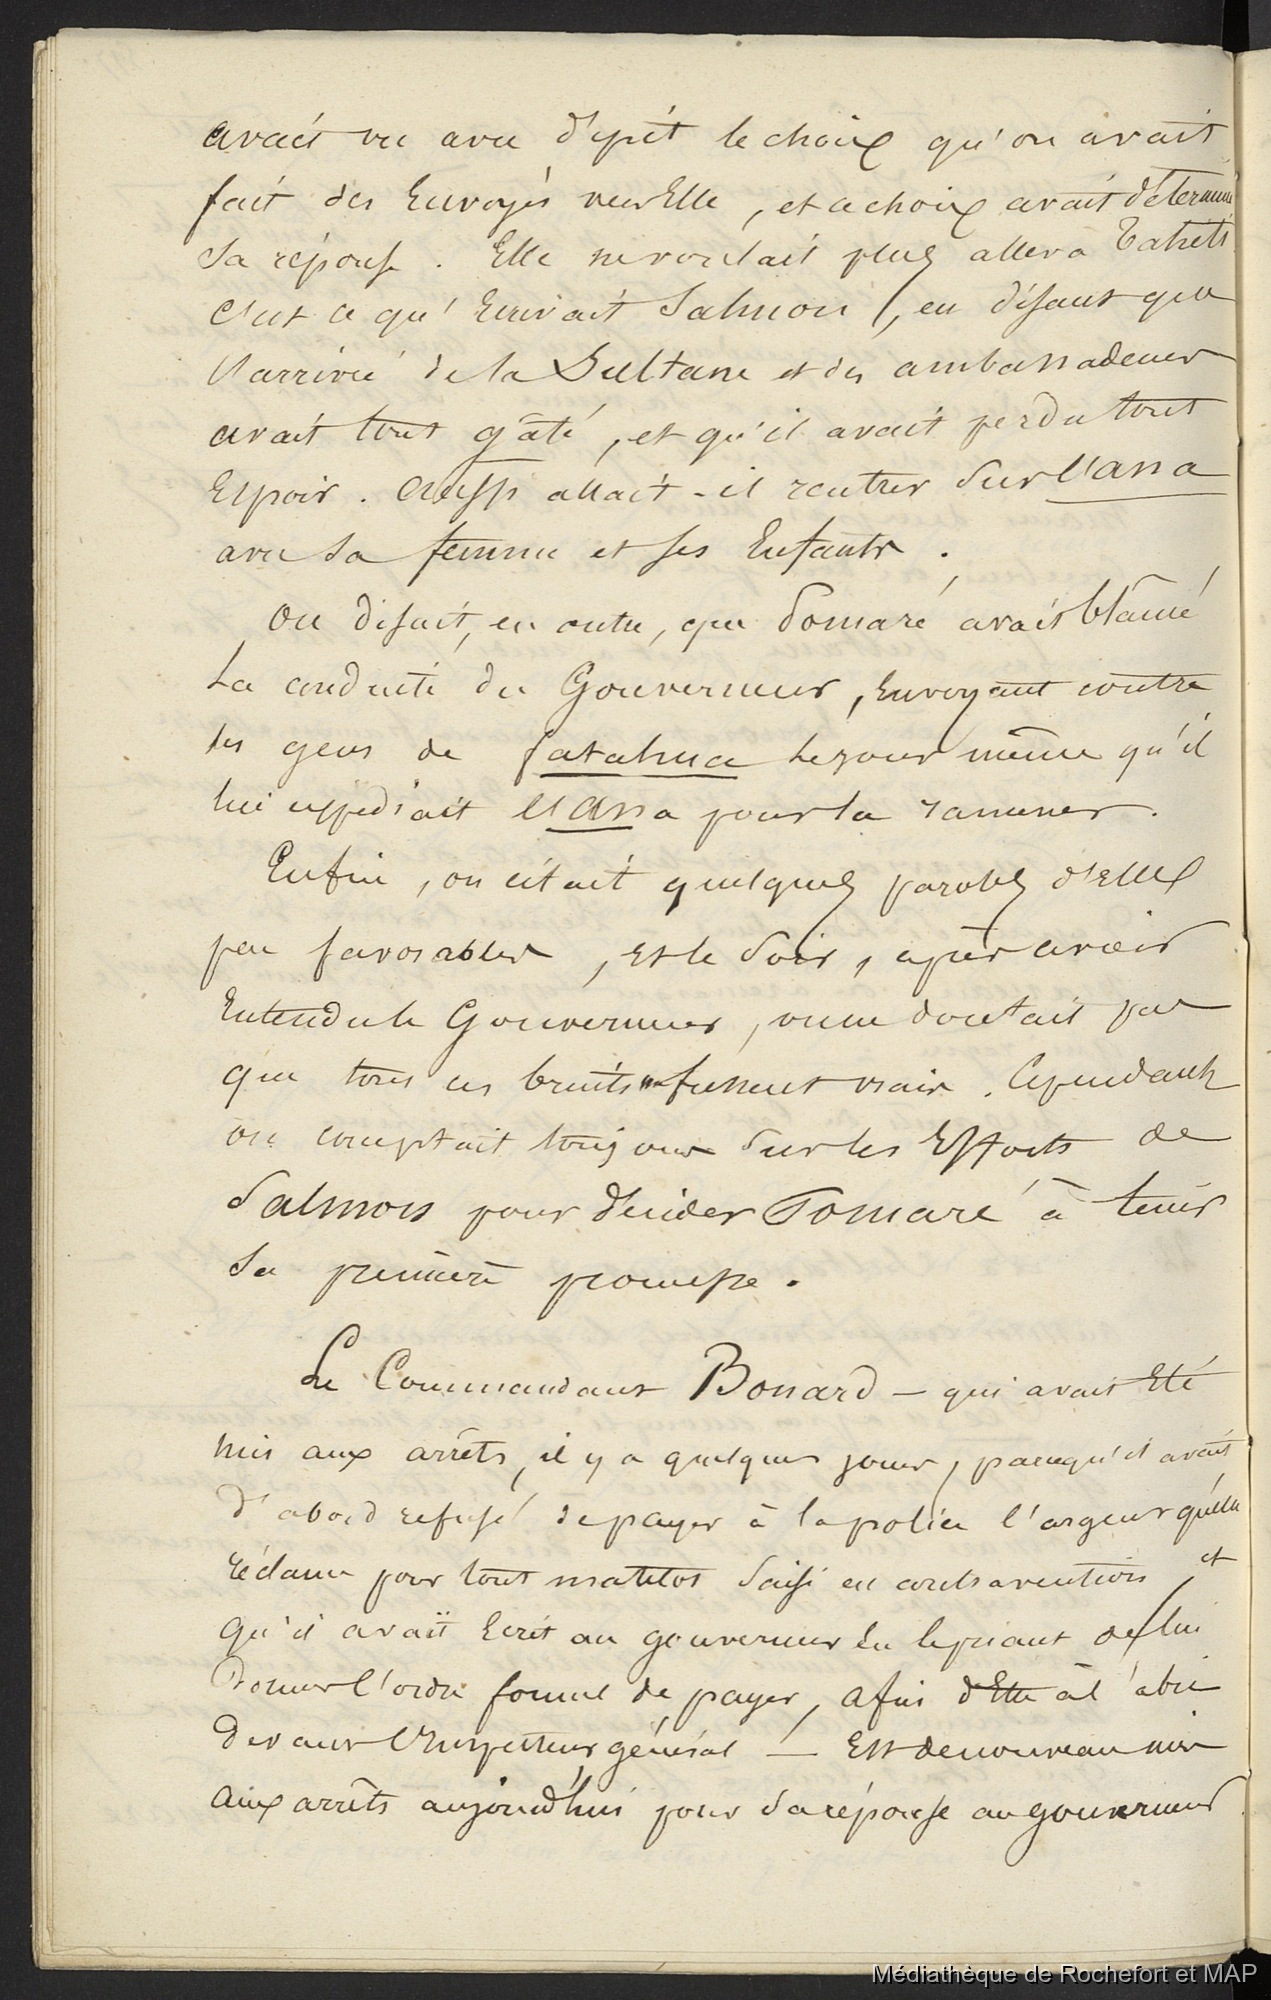 avait vu avec dépit le choix qu'on avait
fait des Envoyés vers Elle, et ce choix avait déterminé
Sa réponse. Elle ne voulait plus aller à Tahiti
C'est ce qu'Ecrivait Salmon, en disant que
l'arrivée de la Sultane et des ambassadeurs
avait tout gâté, et qu'il avait perdu tout
Espoir. Aussi allait-il rentrer Sur l'Ana
avec Sa femme et ses Enfants.
On disait, en outre, que Pomaré avait blâmé
La conduite du Gouverneur, Envoyant contre
les gens de fatahua le jour même qu'il
lui expédiait l'Ana pour la ramener.
Enfin, on citait quelques paroles d'Elle
peu favorables, Et le Soir, après avoir
Entendu le Gouverneur, on ne doutait pas
que tous ces bruits ne fussent vrais. Cependant
on comptait toujours Sur les Efforts de
Salmon pour décider Pomaré à tenir
Sa première promesse.
Le Commandant Bonard - qui avait Eté
mis aux arrêts, il y a quelques jours, parcequ'il avait
d'abord refusé de payer à la police l'argent qu'elle
réclame pour tout matelot Saisi en contravention, et
qu'il avait Ecrit au gouverneur En le priant de lui
Donner l'ordre formel de payer, afin d'Etre à l'abri
Devant l'Inspecteur général - Est de nouveau mis
Aux arrêts aujourd'hui pour Sa réponse au gouverneur
Médiathèque de Rochefort et MAP